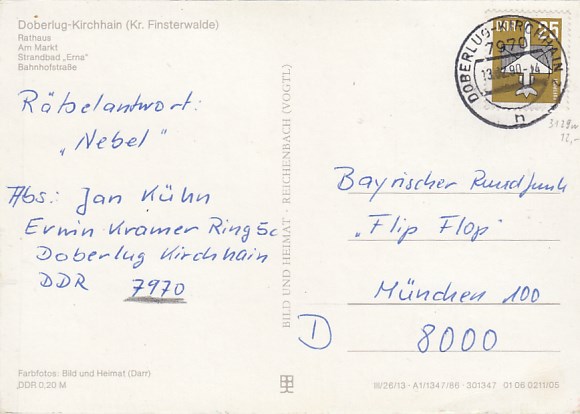 Doberlug-Kirchhain (Kr. Finsterwalde)
Rathaus
Am Markt
Strandbad „Erna"
Bahnhofstraße
Rätselantwort:
„Nebel"
Abs: Jan Kühn
Erwin Kramer Ring 5c
Doberlug Kirchhain
DDR 7970
Farbfotos: Bild und Heimat (Darr)
DDR 0,20 M
BILD UND HEIMAT · REICHENBACH (VOGTL)
DOBERLUG-KIRCHHAIN
7970
90-14
h
25
3129w
12,-
Bayrischer Rundfunk
„Flip Flop"
München 100
D 8000
III/26/13 · A1/1347/86 · 301347 01 06 0211/05